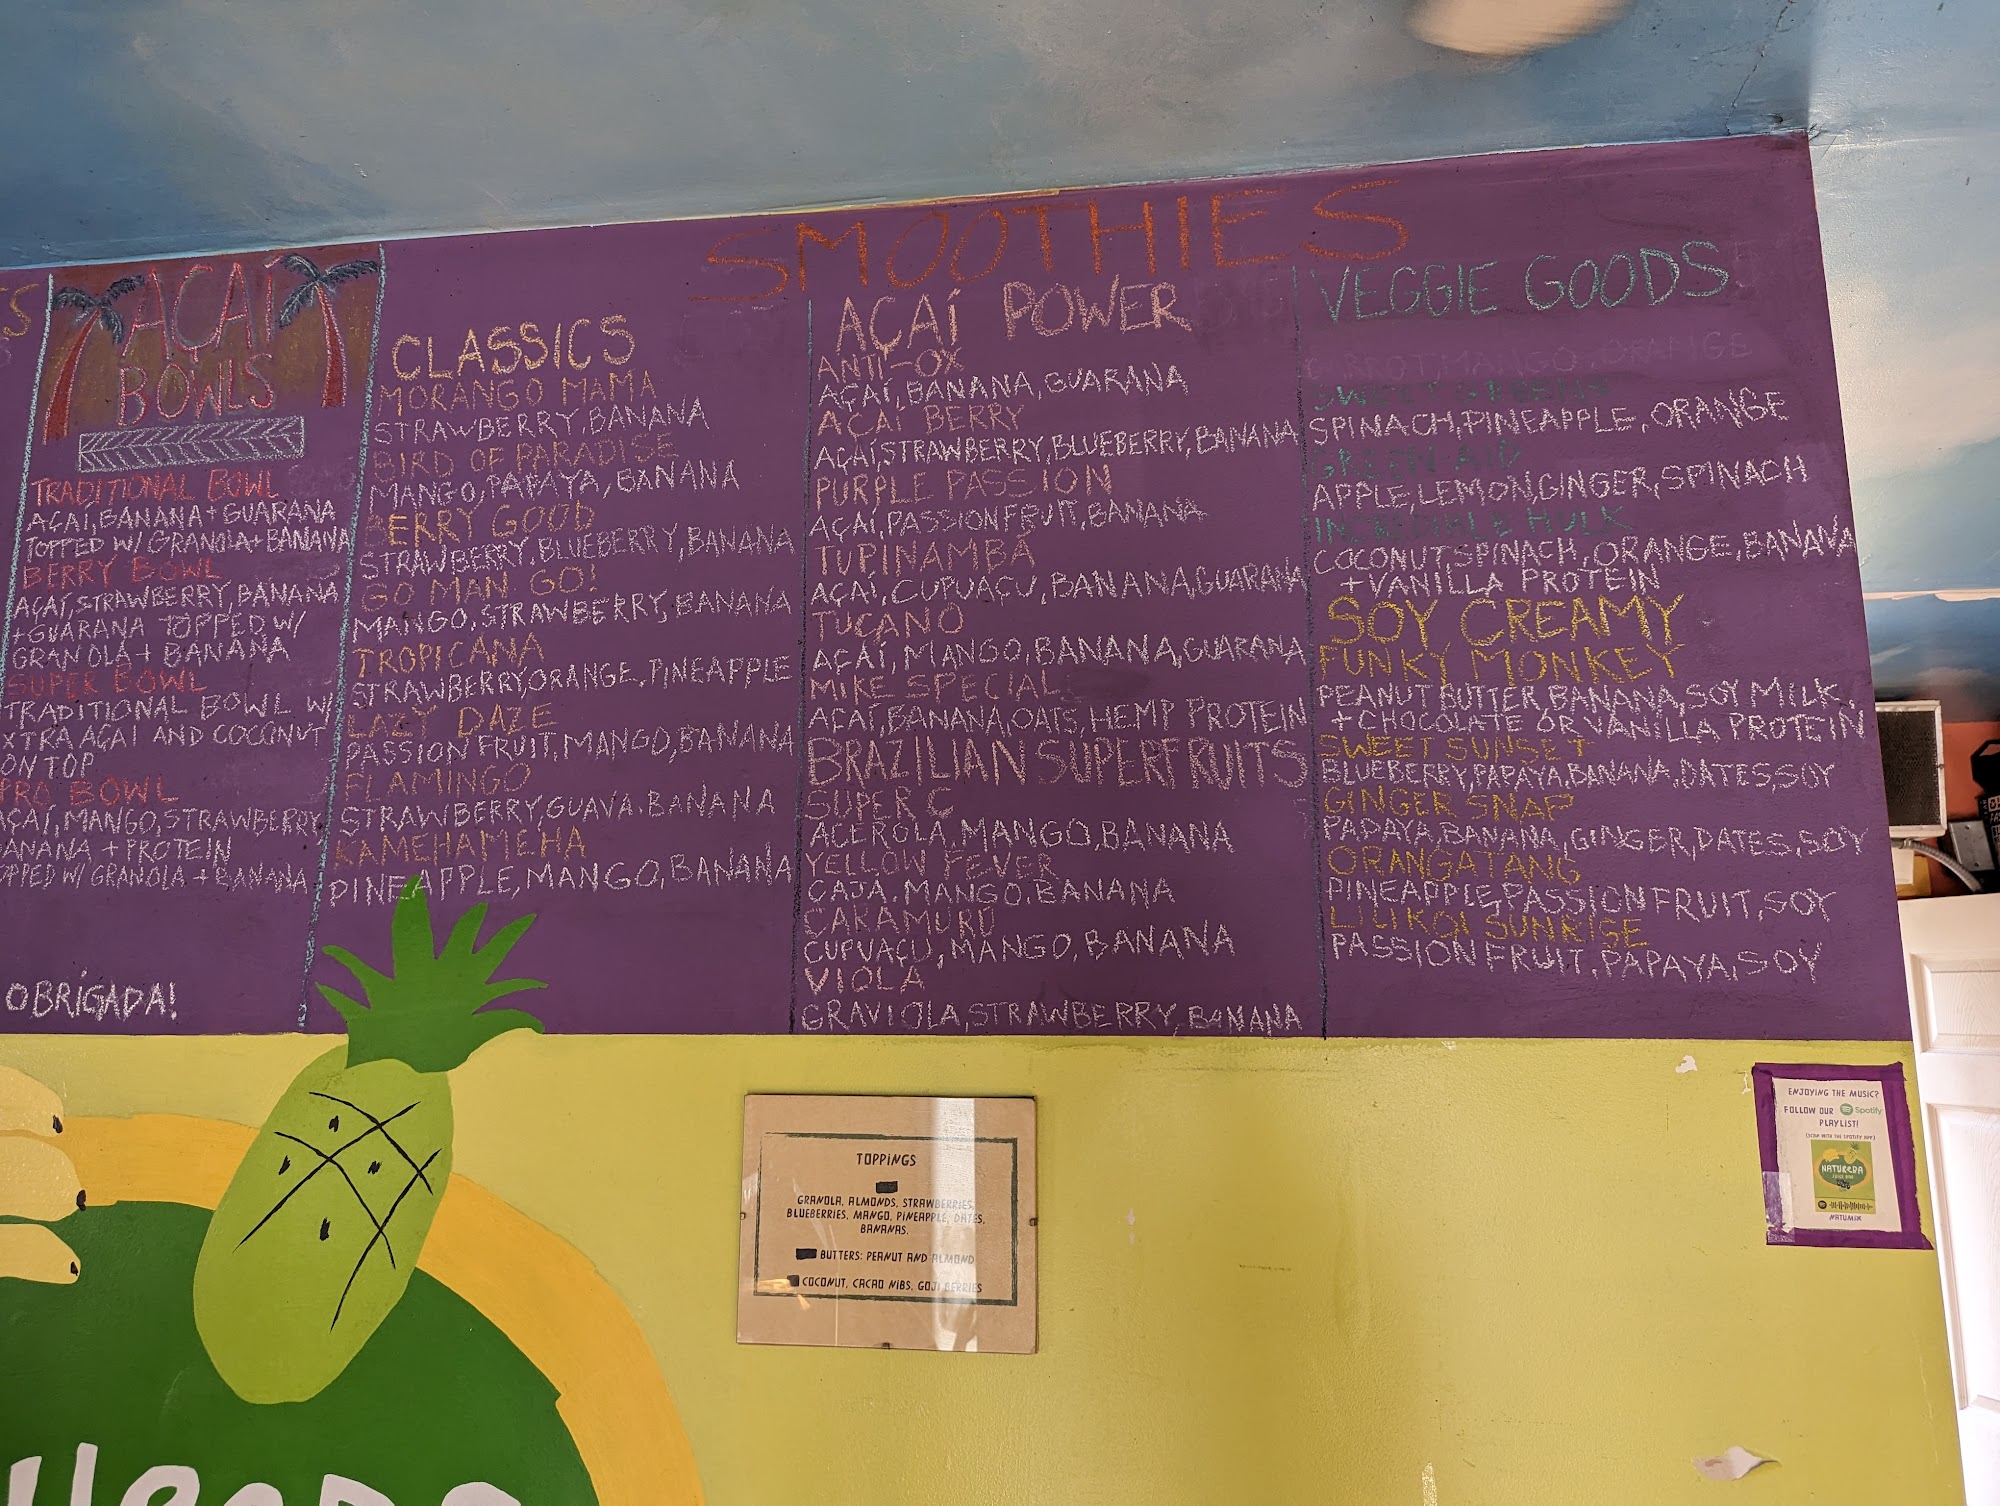 SMOOTHIES
AÇAÍ
BOWLS
TRADITIONAL BOWL
AÇAÍ, BANANA + GUARANA
TOPPED W/ GRANOLA + BANANA
BERRY BOWL
AÇAÍ, STRAWBERRY, BANANA
+ GUARANA TOPPED W/
GRANOLA + BANANA
SUPER BOWL
TRADITIONAL BOWL W/
XTRA AÇAI AND COCONUT
ON TOP
PRO BOWL
AÇAÍ, MANGO, STRAWBERRY,
BANANA + PROTEIN
TOPPED W/ GRANOLA + BANANA
OBRÍGADA!
CLASSICS
MORANGO MAMA
STRAWBERRY, BANANA
BIRD OF PARADISE
MANGO, PAPAYA, BANANA
BERRY GOOD
STRAWBERRY, BLUEBERRY, BANANA
GO MAN GO!
MANGO, STRAWBERRY, BANANA
TROPICANA
STRAWBERRY, ORANGE, PINEAPPLE
LAZY DAZE
PASSION FRUIT, MANGO, BANANA
FLAMINGO
STRAWBERRY, GUAVA, BANANA
KAMEHAMEHA
PINEAPPLE, MANGO, BANANA
AÇAÍ POWER
ANTI-OX
AÇAÍ, BANANA, GUARANA
AÇAI BERRY
AÇAÍ, STRAWBERRY, BLUEBERRY, BANANA
PURPLE PASSION
AÇAÍ, PASSION FRUIT, BANANA
TUPINAMBÁ
AÇAÍ, CUPUAÇU, BANANA, GUARANA
TUCANO
AÇAÍ, MANGO, BANANA, GUARANA
MIKE SPECIAL
AÇAÍ, BANANA, OATS, HEMP PROTEIN
BRAZILIAN SUPERFRUITS
SUPER C
ACEROLA, MANGO, BANANA
YELLOW FEVER
CAJA, MANGO, BANANA
CARAMURU
CUPUAÇU, MANGO, BANANA
VIOLA
GRAVIOLA, STRAWBERRY, BANANA
VEGGIE GOODS
CARROT, MANGO, ORANGE
SWEET GREENS
SPINACH, PINEAPPLE, ORANGE
GREEN AID
APPLE, LEMON, GINGER, SPINACH
INCREDIBLE HULK
COCONUT, SPINACH, ORANGE, BANANA
+ VANILLA PROTEIN
SOY CREAMY
FUNKY MONKEY
PEANUT BUTTER, BANANA, SOY MILK,
+ CHOCOLATE OR VANILLA PROTEIN
SWEET SUNSET
BLUEBERRY, PAPAYA, BANANA, DATES, SOY
GINGER SNAP
PAPAYA, BANANA, GINGER, DATES, SOY
ORANGATANG
PINEAPPLE, PASSION FRUIT, SOY
LILIKOI SUNRISE
PASSION FRUIT, PAPAYA, SOY
TOPPINGS
GRANOLA, ALMONDS, STRAWBERRIES,
BLUEBERRIES, MANGO, PINEAPPLE, DATES,
BANANAS.
BUTTERS: PEANUT AND ALMOND
COCONUT, CACAO NIBS, GOJI BERRIES
ENJOYING THE MUSIC?
FOLLOW OUR Spotify
PLAYLIST!
(SCAN WITH THE SPOTIFY APP)
NATUREDA
JUICE BAR